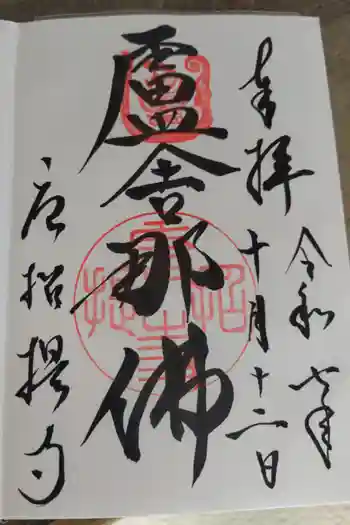 奉拝
令和七年
十月十二日
盧舎那佛
唐招提寺